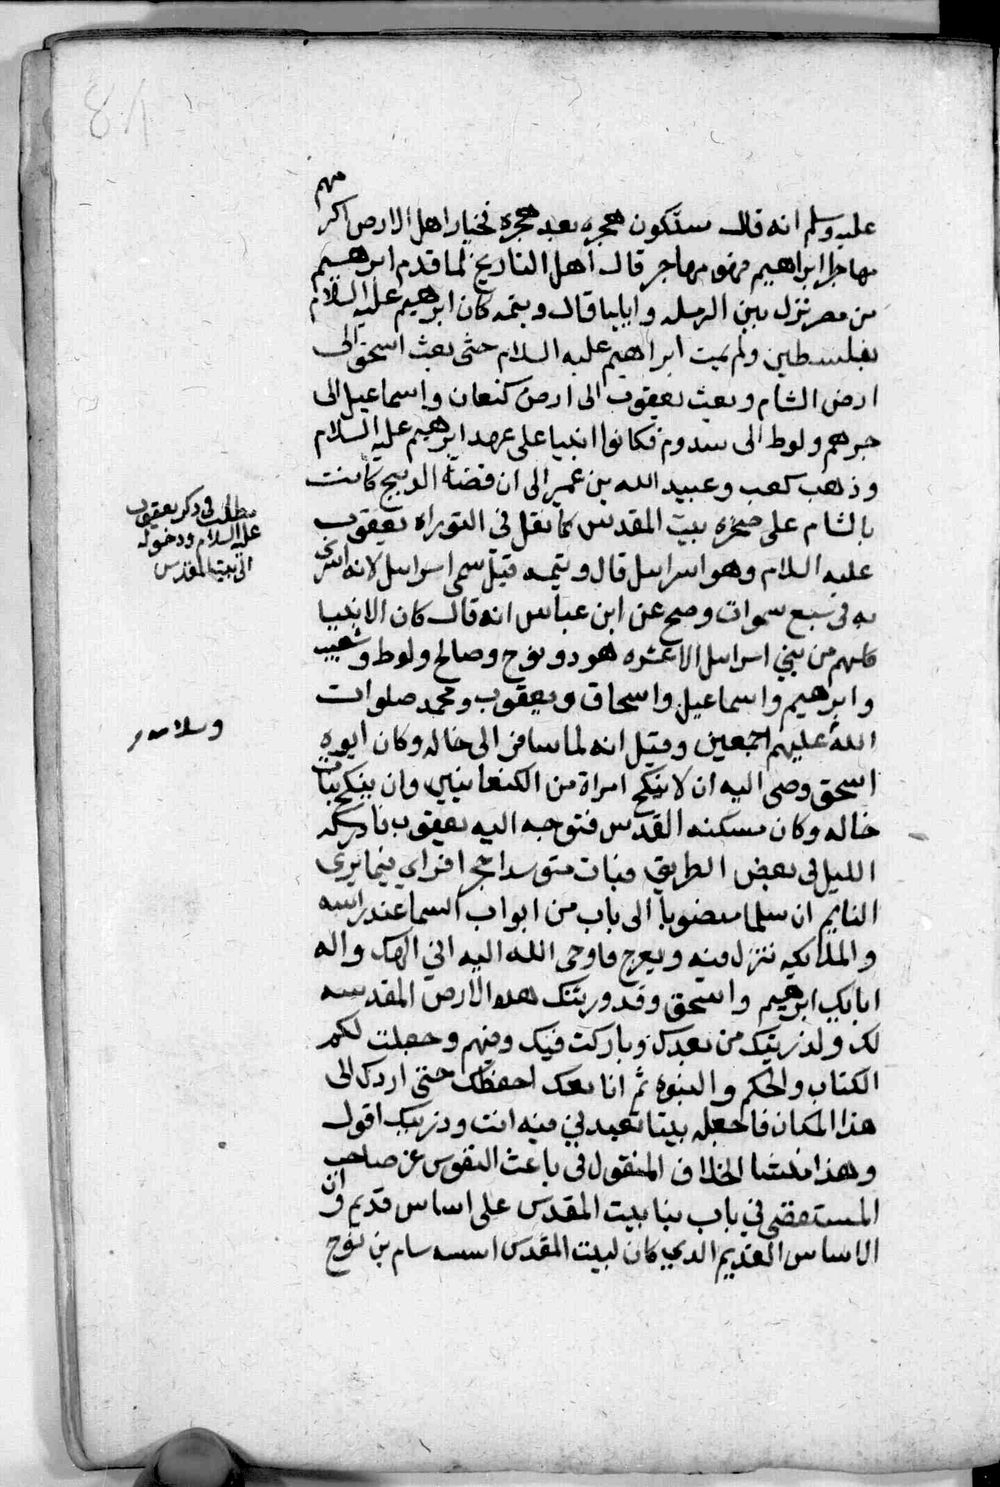 عليه وسلم انه قال ستكون هجره بعد هجره فخيار اهل الارض اكرمهم
مهاجرا ابراهيم فهو مهاجر قال اهل التاريخ لما قدم ابرهيم
من مصر نزل بين الرمله وايليا قال ويتمه كان ابرهيم عليه السلام
بفلسطين ولم يمت ابراهيم عليه السلام حتى بعث اسحق الى
ارض الشام وبعث يعقوب الى ارض كنعان واسماعيل الى
جرهم ولوط الى سدوم فكانوا انبيا على عهد ابرهيم عليه السلام
وذهب كعب وعبيد الله بن عمير الى ان قصة الدبيح كانت
بالشام على صخره بيت المقدس كما نقل في التوراه يعقوب
عليه السلام وهو اسرايل قال ويتمه قيل سمى اسرايل لانه اسرى
به في سبع سموات وصح عن ابن عباس انه قال كان الانبيا
كلهم من بني اسرايل الا عشره هود ونوح وصالح ولوط وشعيب
وابرهيم واسماعيل واسحاق ويعقوب ومحمد صلوات
الله عليهم اجمعين وقيل انه لما سافر الى خاله وكان ابوه
اسحق وصى اليه ان لا ينكح امراة من الكنعانيين وان ينكح بنات
خاله وكان مسكنه القدس فتوجه اليه يعقوب فادركه
الليل في بعض الطريق فبات متوسدا حجر افراي فيما يرى
النايم ان سلما منصوبا الى باب من ابواب السما عند راسه
والملايكه تنزل فيه وتعرج فاوحى الله اليه اني الهك واله
ابايك ابرهيم واسحق وقد ورثتك هده الارض المقدسه
لك ولذريتك من بعدك وباركت فيك وفيهم وجعلت لكم
الكتاب والحكم والنبوه ثم انا معك احفظك حتى اردك الى
هذا المكان فاجعله بيتا تعبدني فيه انت ودزيتك اقول
وهذا منشا الخلاف المنقول في باعث النفوس عن صاحب
المستقصي في باب بنا بيت المقدس على اساس قديم وان
الاساس القديم الدي كان لبيت المقدس اسسه سام بن نوح
مطلب في ذكر يعقوب
عليه السلام ودخوله
الى بيت المقدس
وسلامه